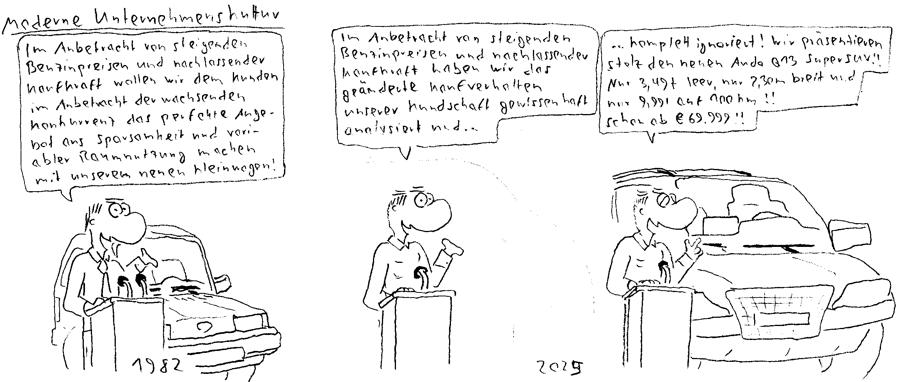 Moderne Unternehmenskultur
Im Anbetracht von steigenden
Benzinpreisen und nachlassender
Kaufkraft wollen wir dem Kunden
im Anbetracht der wachsenden
Konkurrenz das perfekte Ange-
bot aus Sparsamkeit und vari-
abler Raumnutzung machen
mit unserem neuen Kleinwagen!
1982
Im Anbetracht von steigenden
Benzinpreisen und nachlassender
Kaufkraft haben wir das
geänderte Kaufverhalten
unserer Kundschaft gewissenhaft
analysiert und...
2025
...komplett ignoriert! Wir präsentieren
stolz den neuen Auda Q13 SuperSUV!!
Nur 3,49t leer, nur 2,30m breit und
nur 9,99l auf 100km!!
schon ab € 69.999!!